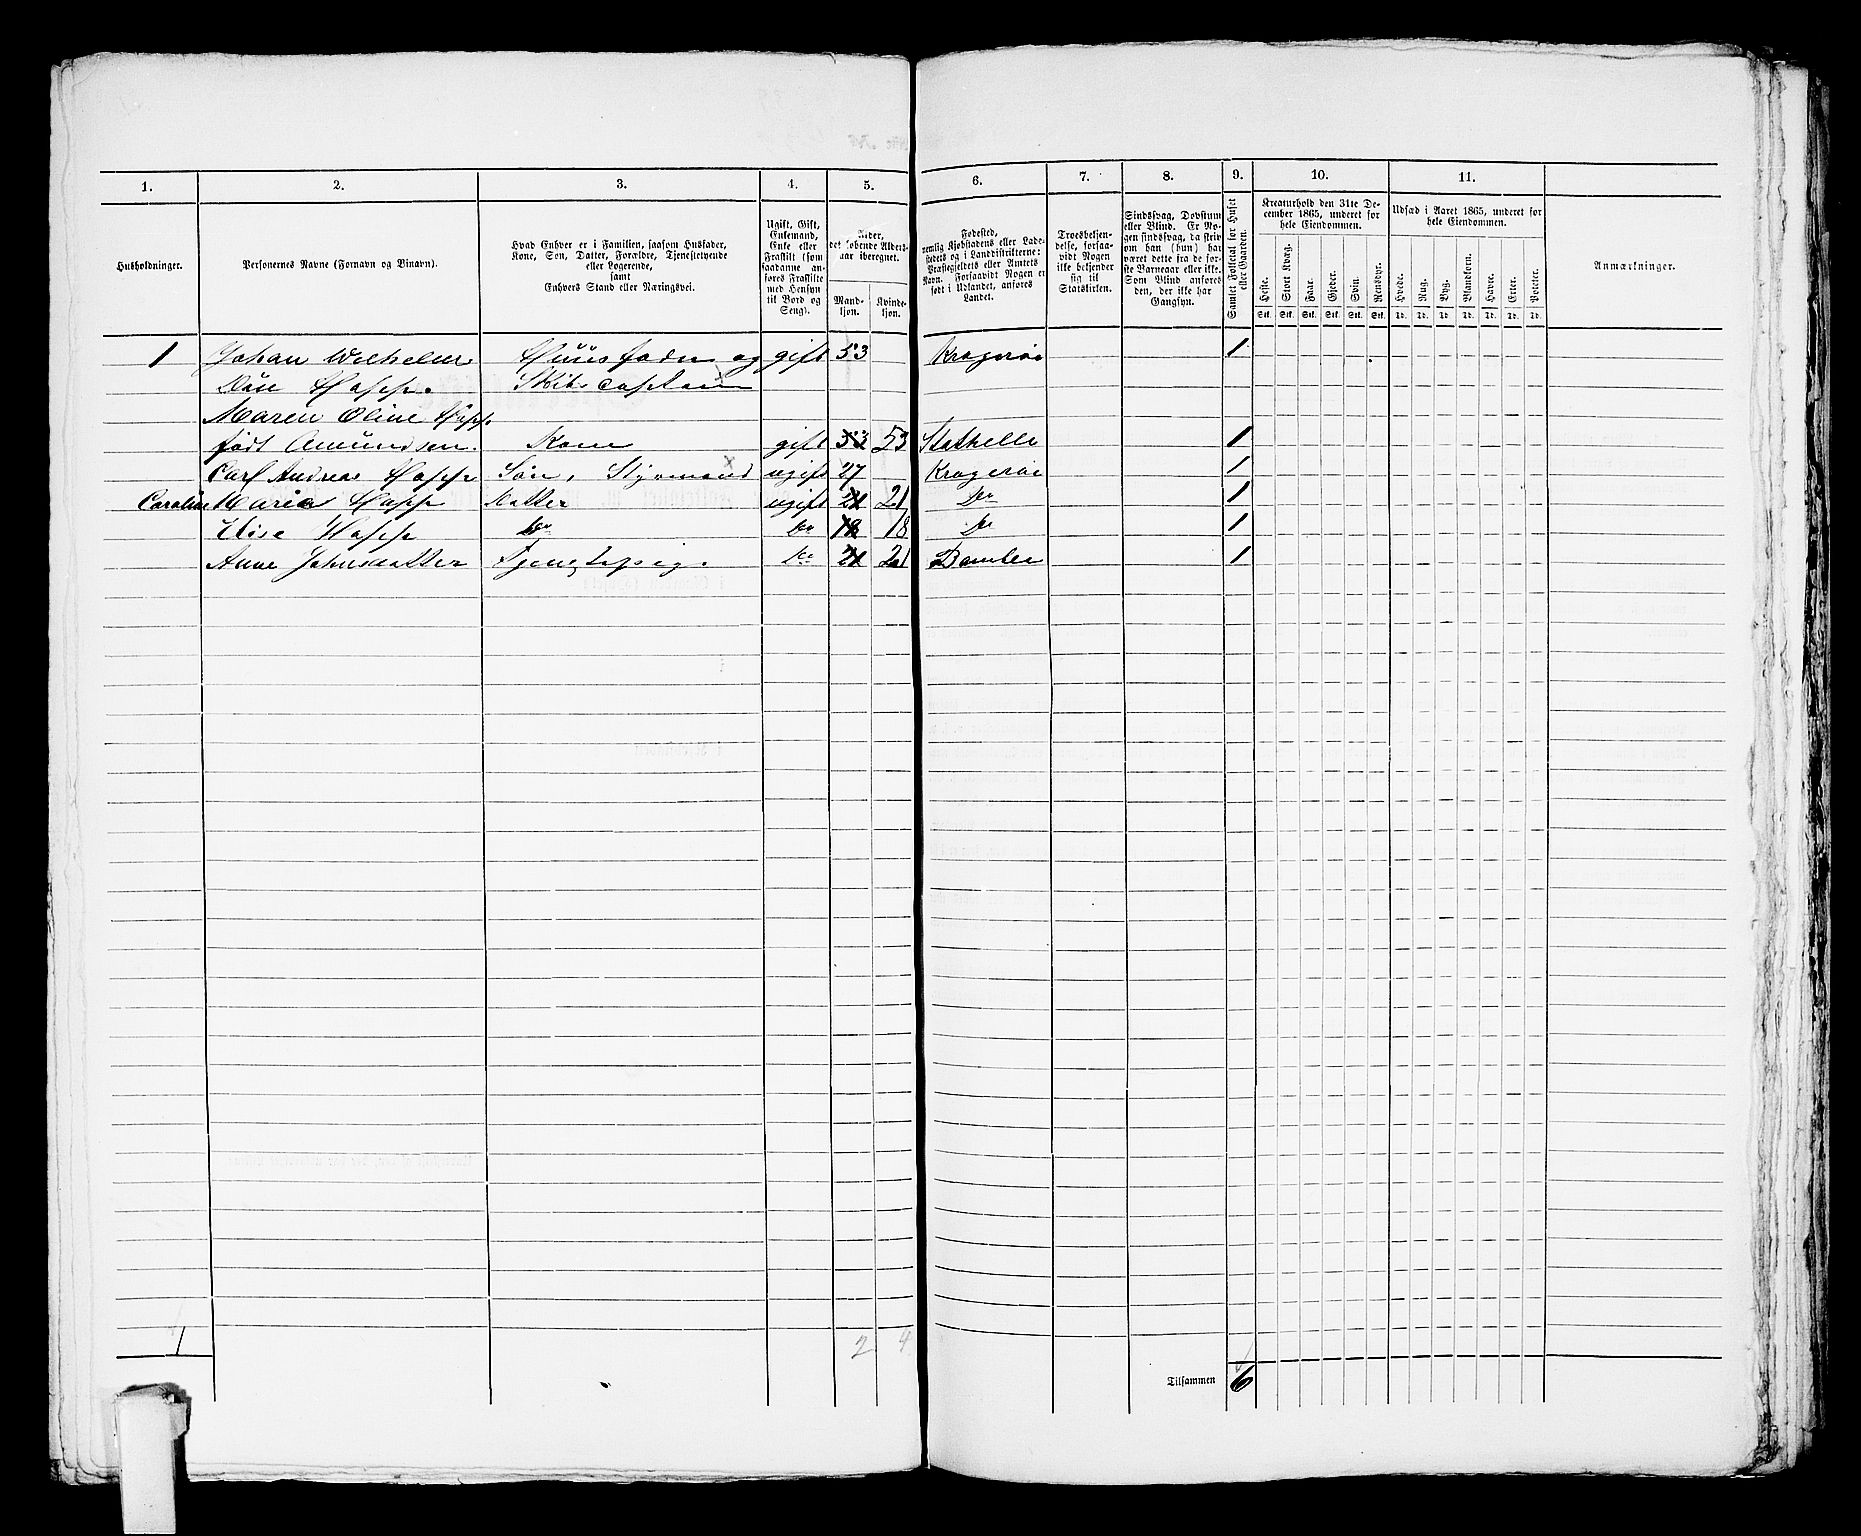 1. 2. 3. 4. 5. 6. 7. 8. 9. 10. 11.
Husholdninger.
Personernes Navne (Fornavn og Binavn).
Hvad Enhver er i Familien, saasom Husfader,
Kone, Søn, Datter, Forældre, Tjenestetyende
eller Logerende,
samt
Enhvers Stand eller Næringsvei.
Ugift, Gift,
Enkemand,
Enke eller
Fraskilt (som
saadanne an-
føres Fraskilte
med Hensyn
til Bord og
Seng).
Alder,
det løbende Alders-
aar iberegnet.
Mand-
kjøn.
Kvinde-
kjøn.
Fødested,
nemlig Kjøbstadens eller Lade-
stedets og i Landdistrikterne:
Præstegjeldets eller Amtets
Navn. Forsaavidt Nogen er
født i Udlandet, anføres
Landet.
Troesbekjen-
delse, forsaa-
vidt Nogen
ikke bekjender
sig til
Statskirken.
Sindssvag, Døvstum
eller Blind. Er No-
gen sindssvag, da skriv
om han (hun) har
været dette fra de før-
ste Barneaar eller ikke.
Som Blind anføres
den, der ikke har
Gangsyn.
Samlet Folketal for Huset
eller Gaarden.
Kreaturhold den 31te De-
cember 1865, underet for
hele Eiendommen.
Heste. Stort Kvæg. Faar. Gjeder. Svin. Rensdyr.
Stk. Stk. Stk. Stk. Stk. Stk.
Udsæd i Aaret 1865, underet for
hele Eiendommen.
Hvede. Rug. Byg. Blandkorn. Havre. Erter. Poteter.
Td. Td. Td. Td. Td. Td. Td.
Anmærkninger.
1 Johan Wilhelm Huusfader og gift 53 Kragerøe 1
Due Happe. Skibscaptain
Maren Oline Happe
født Amundsen. Kone gift 53 53 Stathelle 1
Carl Andreas Happe Søn, Styrmand ugift 27 Kragerøe 1
Caroline Maria Happe Datter ugift 21 21 Do 1
Elise Happe Do Do 18 18 Do 1
Anne Johnsdatter Tjenestepige. Do 21 21 Bamble 1
1 2 4
Tilsammen 6